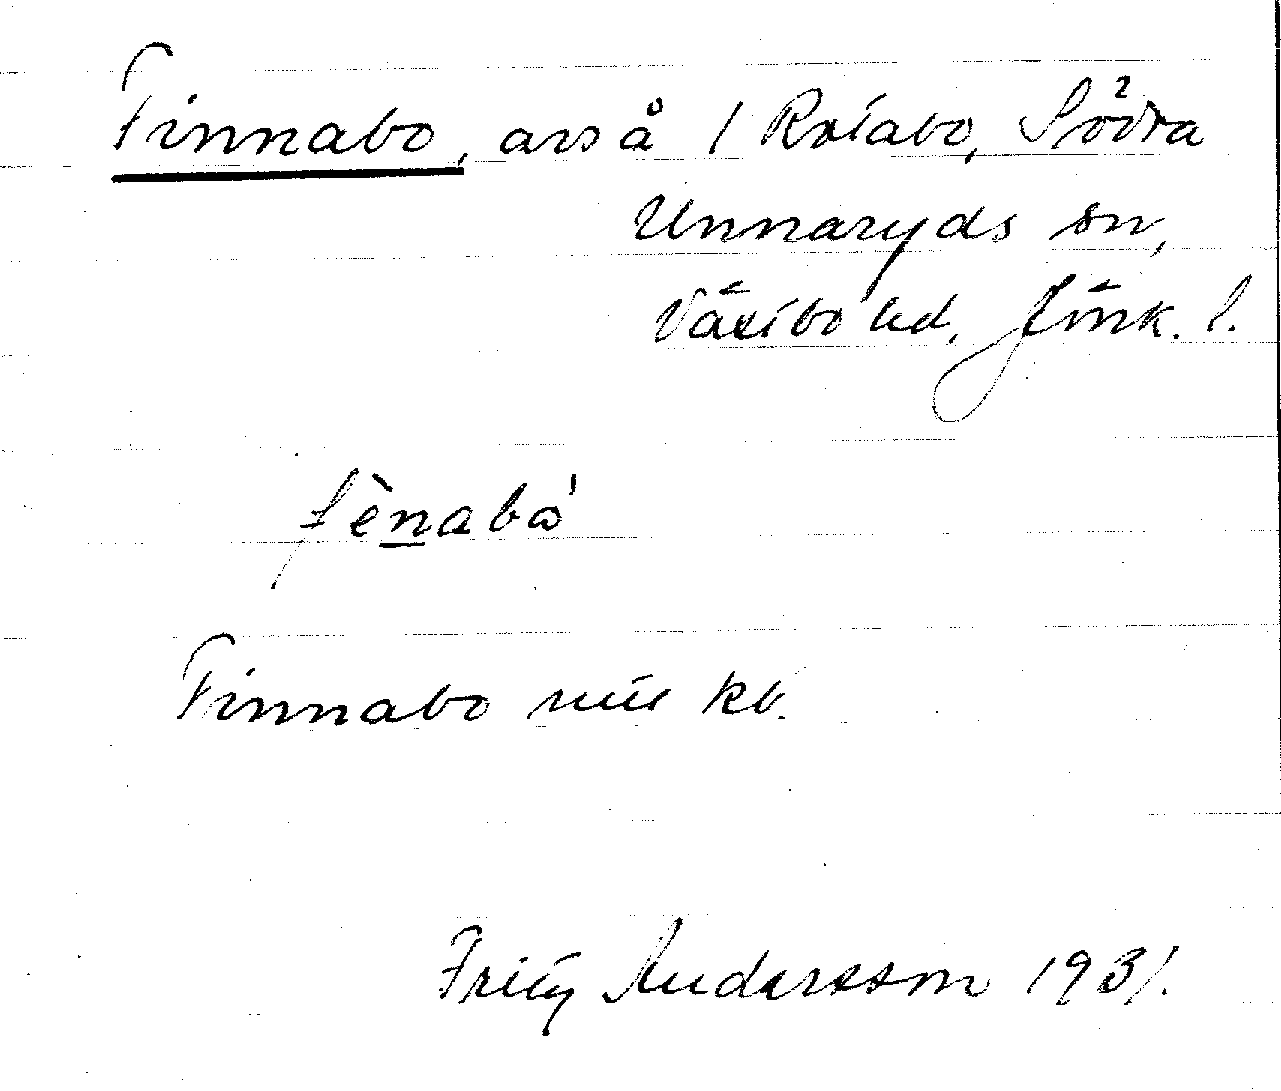 Finnabo, avs å 1 Rotabo, Södra
Unnaryds sn,
Västbo hd, Jönk. l.
fènabò
Finnabo mtl kb.
Fritz Andersson 1931.